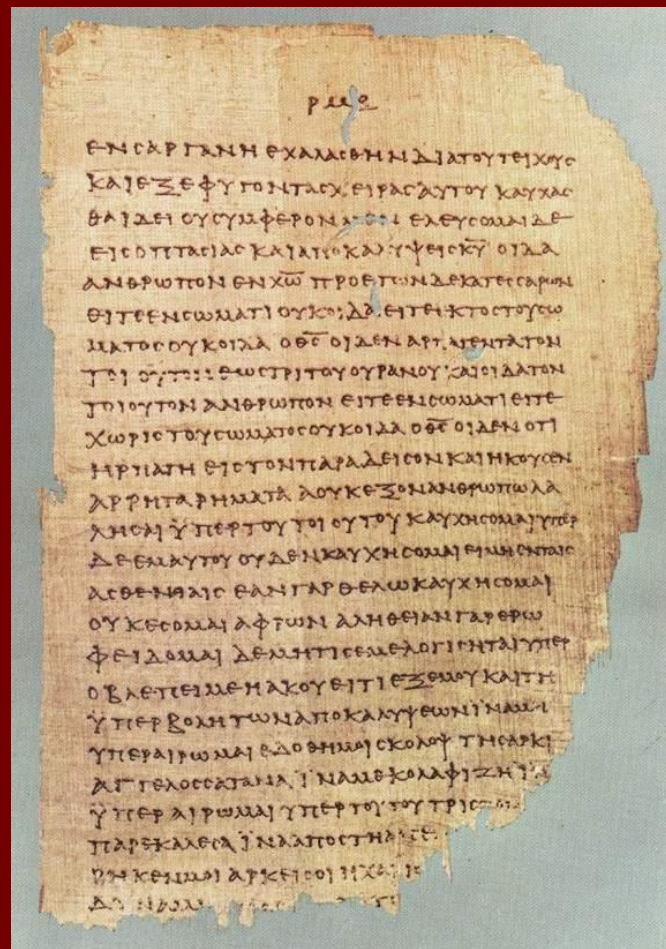 ΡΜΕ
ΕΝϹΑΡΓΑΝΗ ΕΧΑΛΑϹΘΗΝ ΔΙΑΤΟΥΤΕΙΧΟΥϹ
ΚΑΙΕΞΕΦΥΓΟΝΤΑϹΧΕΙΡΑϹ ΑΥΤΟΥ ΚΑΥΧΑϹ
ΘΑΙ ΔΕΙ ΟΥϹΥΜΦΕΡΟΝ ΜΕΝ ΕΛΕΥϹΟΜΑΙ ΔΕ
ΕΙϹΟΠΤΑϹΙΑϹ ΚΑΙΑΠΟΚΑΛΥΨΕΙϹ Κ̅Υ̅ ΟΙΔΑ
ΑΝΘΡΩΠΟΝ ΕΝ Χ̅Ω̅ ΠΡΟΕΤΩΝ ΔΕΚΑΤΕϹϹΑΡΩΝ
ΕΙΤΕΕΝϹΩΜΑΤΙ ΟΥΚΟΙΔΑ ΕΙΤΕΕΚΤΟϹΤΟΥϹΩ
ΜΑΤΟϹ ΟΥΚΟΙΔΑ Ο Θ̅Ϲ̅ ΟΙΔΕΝ ΑΡΠΑΓΕΝΤΑΤΟΝ
ΤΟΙΟΥΤΟΝ ΕΩϹΤΡΙΤΟΥΟΥΡΑΝΟΥ ΚΑΙΟΙΔΑΤΟΝ
ΤΟΙΟΥΤΟΝ ΑΝΘΡΩΠΟΝ ΕΙΤΕΕΝϹΩΜΑΤΙ ΕΙΤΕ
ΧΩΡΙϹΤΟΥϹΩΜΑΤΟϹΟΥΚΟΙΔΑ Ο Θ̅Ϲ̅ ΟΙΔΕΝ ΟΤΙ
ΗΡΠΑΓΗ ΕΙϹΤΟΝΠΑΡΑΔΕΙϹΟΝ ΚΑΙΗΚΟΥϹΕΝ
ΑΡΡΗΤΑΡΗΜΑΤΑ ΑΟΥΚΕΞΟΝΑΝΘΡΩΠΩΛΑ
ΛΗϹΑΙ ΫΠΕΡΤΟΥΤΟΙΟΥΤΟΥ ΚΑΥΧΗϹΟΜΑΙΥΠΕΡ
ΔΕΕΜΑΥΤΟΥ ΟΥΔΕΝΚΑΥΧΗϹΟΜΑΙ ΕΙΜΗΕΝΤΑΙϹ
ΑϹΘΕΝΕΙΑΙϹ ΕΑΝΓΑΡΘΕΛΩΚΑΥΧΗϹΟΜΑΙ
ΟΥΚΕϹΟΜΑΙ ΑΦΡΩΝ ΑΛΗΘΕΙΑΝ ΓΑΡΕΡΩ
ΦΕΙΔΟΜΑΙ ΔΕΜΗΤΙϹΕΜΕΛΟΓΙϹΗΤΑΙΥΠΕΡ
ΟΒΛΕΠΕΙΜΕΗΑΚΟΥΕΙΤΙΕΞΕΜΟΥ ΚΑΙΤΗ
ΫΠΕΡΒΟΛΗΤΩΝΑΠΟΚΑΛΥΨΕΩΝΪΝΑΜΗ
ΥΠΕΡΑΙΡΩΜΑΙ ΕΔΟΘΗΜΟΙϹΚΟΛΟΨ ΤΗϹΑΡΚΙ
ΑΓΓΕΛΟϹϹΑΤΑΝΑ ΪΝΑΜΕΚΟΛΑΦΙΖΗ Ϊ
ΫΠΕΡΑΙΡΩΜΑΙ ΥΠΕΡΤΟΥΤΟΥ ΤΡΙϹ
ΠΑΡΕΚΑΛΕϹΑ ΪΝΑΑΠΟϹΤΗ
ΡΗΚΕΝΜΟΙ ΑΡΚΕΙϹΟΙΗΧΑΡΙϹ
ΔΥΝΑΜΙ